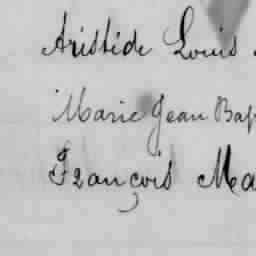 Aristide Louis
Marie Jean Bap
François Ma